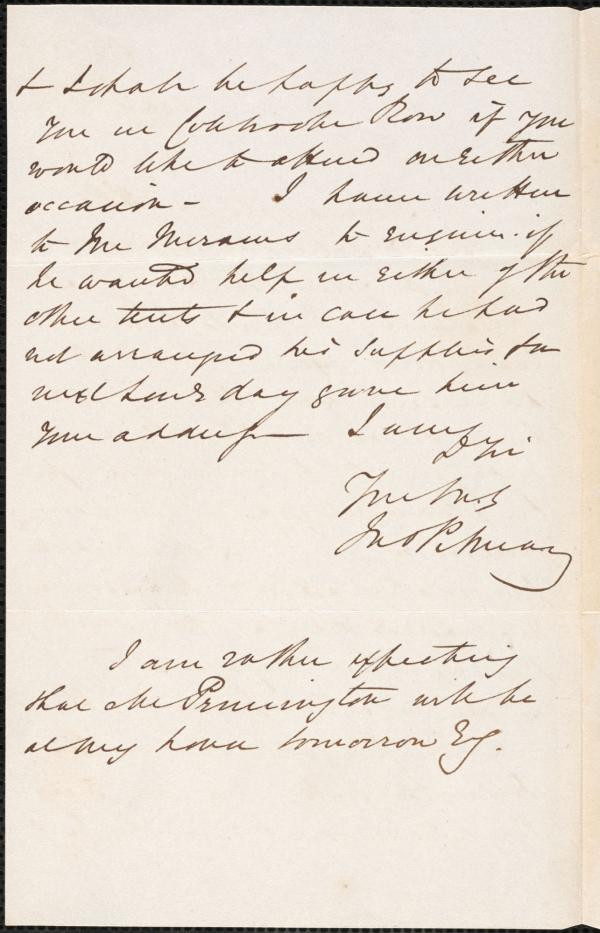 & I shall be happy to see
you in Colebrooke Row if you
would like to attend on either
occasion - I have written
to Mr to enquire if
he wanted help in either of the
other tents & in case he had
not arranged his supplies for
next Lord's day gave him
your address I am
D Sir
Yours truly
Jno
I am rather expecting
that Mr Pennington will be
at my house tomorrow Eg.